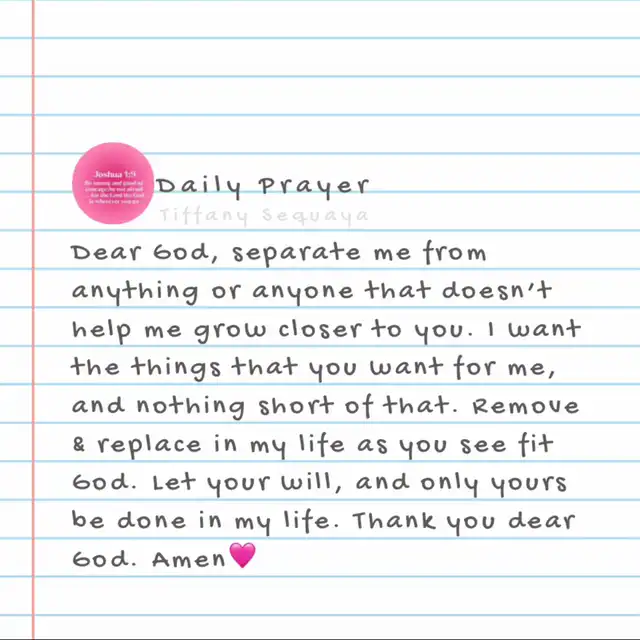 Joshua 1:9
Daily Prayer
Tiffany Sequaya
Dear God, separate me from
anything or anyone that doesn't
help me grow closer to you. I want
the things that you want for me,
and nothing short of that. Remove
& replace in my life as you see fit
God. Let your will, and only yours
be done in my life. Thank you dear
God. Amen🩷